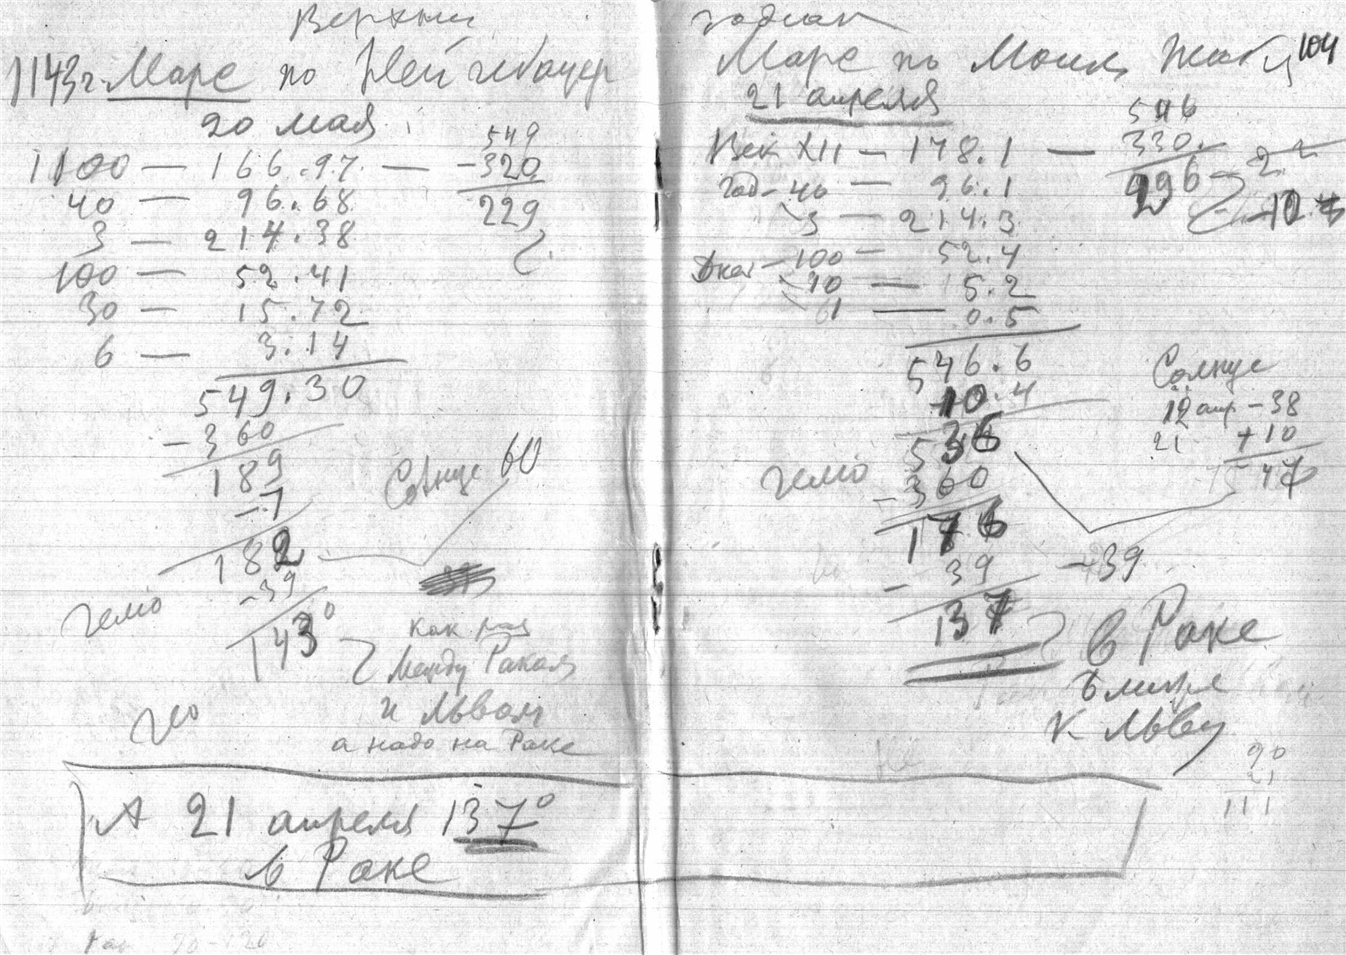 Верхний
1143 г. Марс по Нейгебауер
20 мая
1100 — 166.97 —
549
-320
229
40 — 96.68
3 — 214.38
100 — 52.41
30 — 15.72
6 — 3.14
549.30
-360
189
-7
182
-39
143°
Солнце 60
гелио
как раз
между Раком
и Львом
а надо на Раке
гео
А 21 апреля 137°
в Раке
зодиак
Марс по Моим 104
21 апреля
Век XII — 178.1 —
546
330.
296
год - 40 — 96.1
3 — 214.3
100 — 52.4
10 — 5.2
1 — 0.5
546.6
10.4
536
гелио
-360
176
- 39
137
Солнце
12 апр - 38
21 +10
47
-39
в Раке
ближе
к Льву
90
21
111